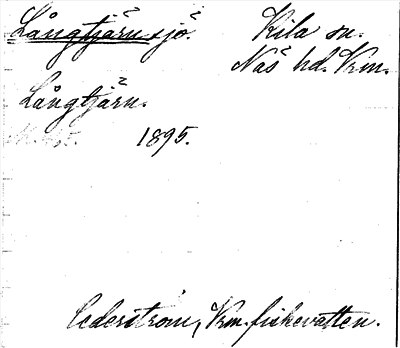 Långtjärn, sjö.
Kila sn.
Näs hd. Vrm.
Långtjärn.
1895.
Cederström, Vrm. fiskevatten.